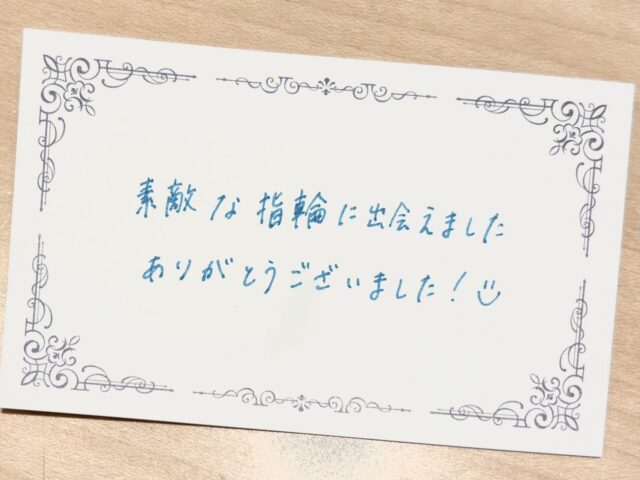 素敵な指輪に出会えました
ありがとうございました!